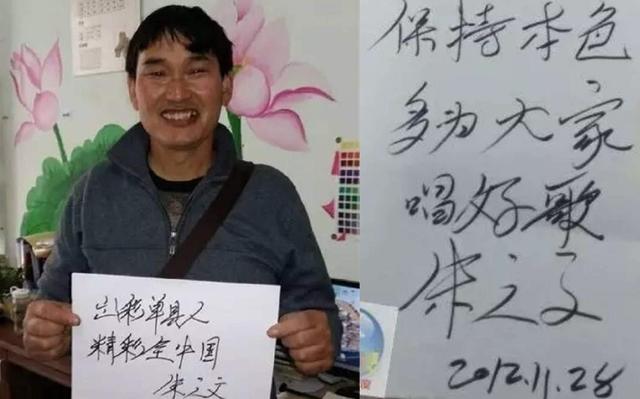 出彩单县人
精彩全中国
朱之文
保持本色
多为大家
唱好歌
朱之文
2012.11.28